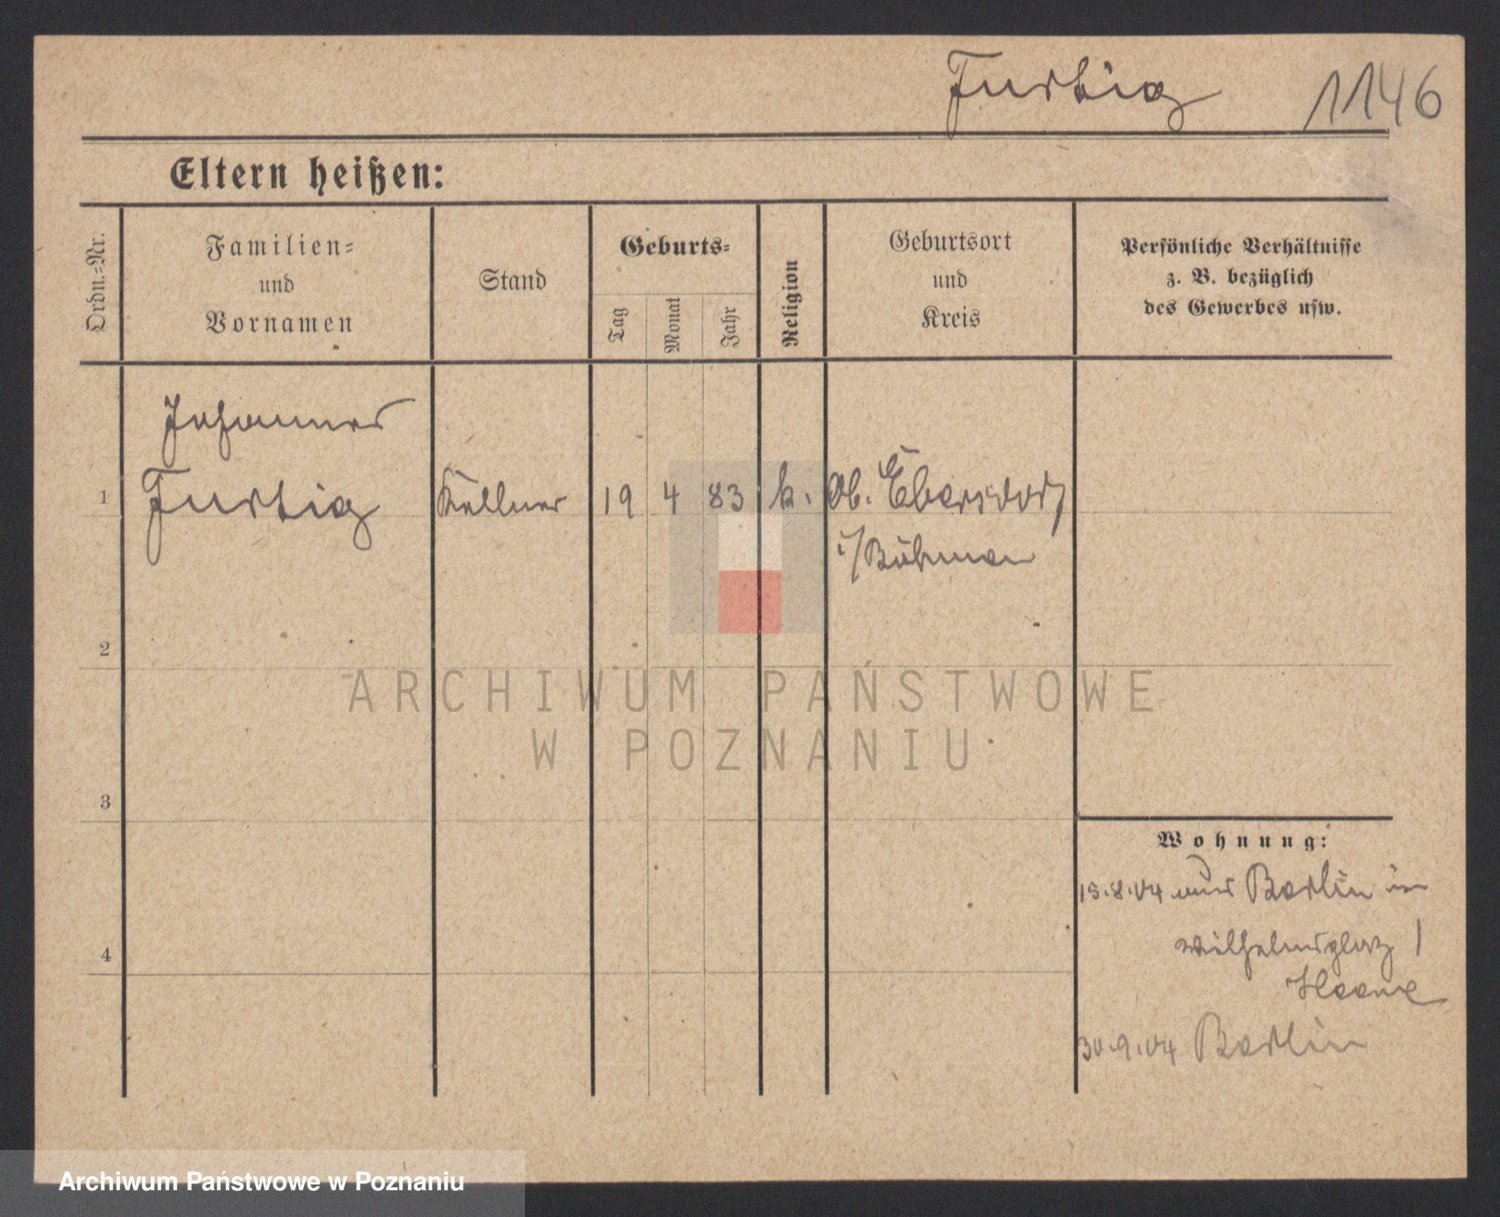 Furtig 1146
Eltern heißen:
Ordn.=Nr.
Familien=
und
Vornamen
Stand
Geburts=
Tag
Monat
Jahr
Religion
Geburtsort
und
Kreis
Persönliche Verhältnisse
z. B. bezüglich
des Gewerbes usw.
Johannes
1 Furtig Kellner 19 4 83 k. Ob. Ebersdorf
i/Böhmen
2
3
4
Wohnung:
15.8.04 aus Berlin in
Wilhelmsplatz 1
30.9.04 Berlin
ARCHIWUM PAŃSTWOWE
W POZNANIU
Archiwum Państwowe w Poznaniu